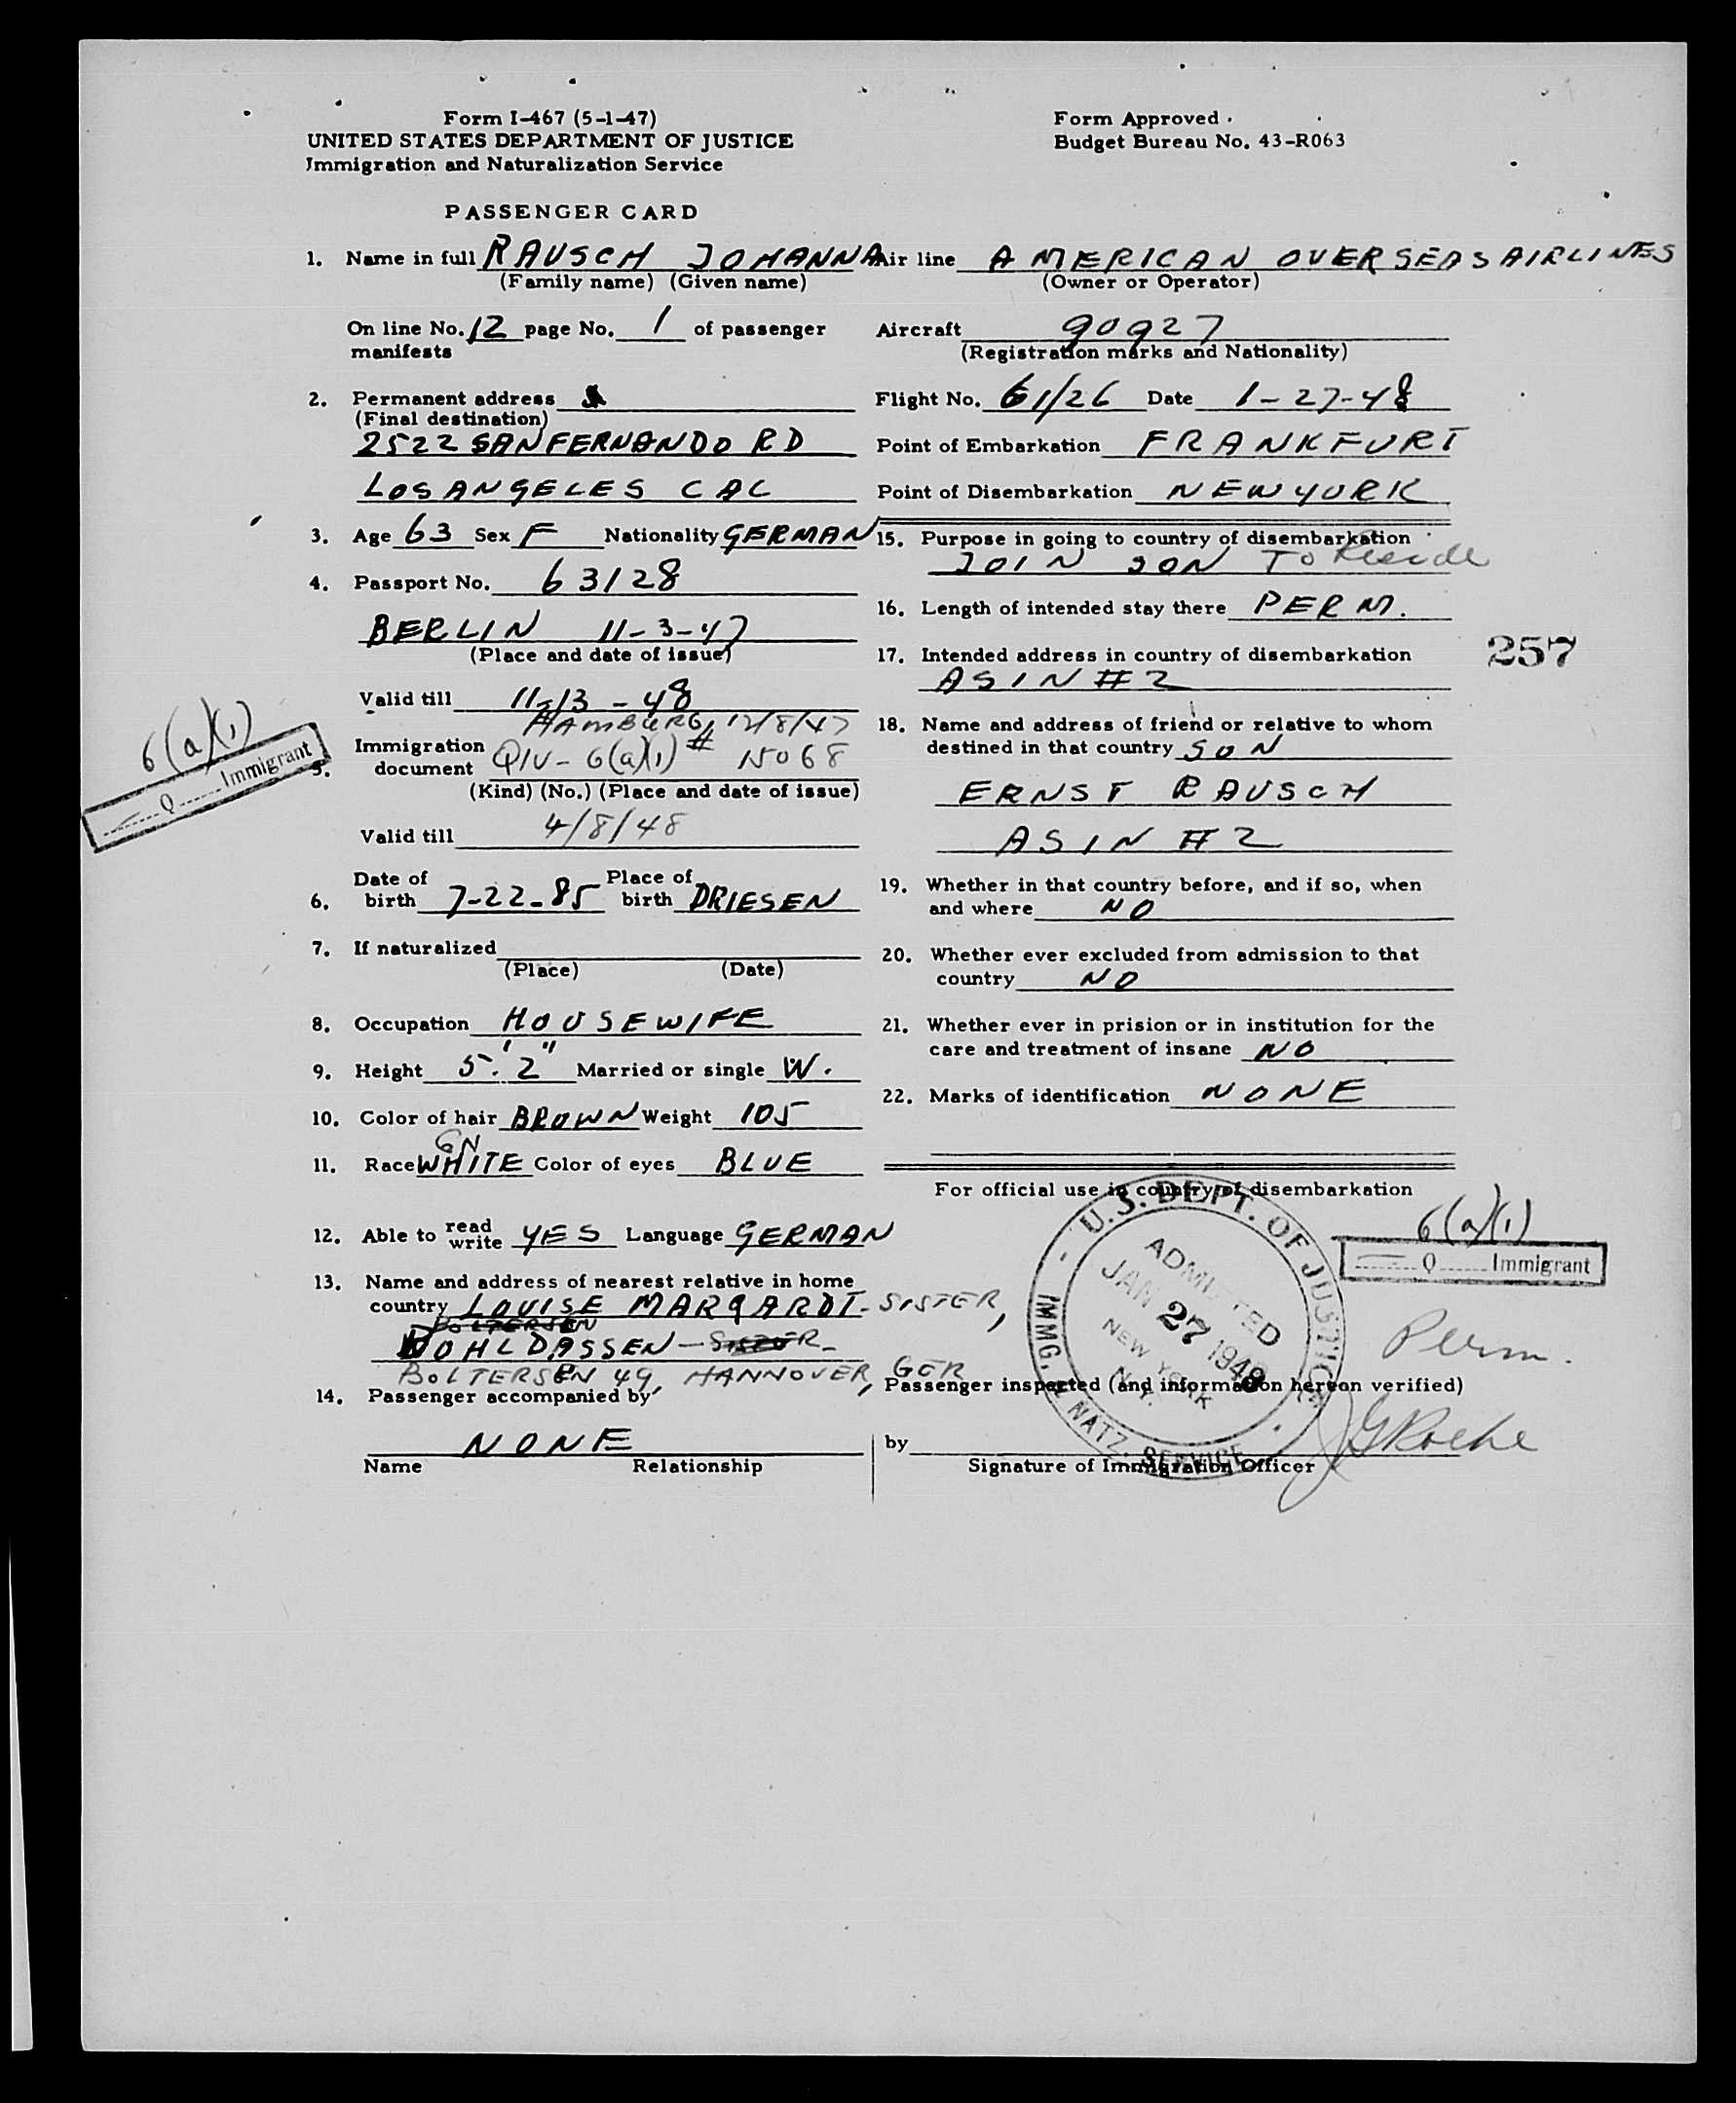 Form I-467 (5-1-47)
UNITED STATES DEPARTMENT OF JUSTICE
Immigration and Naturalization Service
Form Approved
Budget Bureau No. 43-R063
PASSENGER CARD
1. Name in full RAUSCH JOHANNA
(Family name) (Given name)
On line No. 12 page No. 1 of passenger
manifests
2. Permanent address
(Final destination)
2522 SAN FERNANDO RD
LOS ANGELES CAL
3. Age 63 Sex F Nationality GERMAN
4. Passport No. 63128
BERLIN 11-3-47
(Place and date of issue)
Valid till 11-13-48
HAMBURG, 12/8/47
5. Immigration
document QIV-6(a)(1) # 15068
(Kind) (No.) (Place and date of issue)
Valid till 4/8/48
6(a)(1)
Q Immigrant
6. Date of birth 7-22-85 Place of birth DRIESEN
7. If naturalized
(Place) (Date)
8. Occupation HOUSEWIFE
9. Height 5'.2" Married or single W.
10. Color of hair BROWN Weight 105
GN
11. Race WHITE Color of eyes BLUE
12. Able to read write YES Language GERMAN
13. Name and address of nearest relative in home
country LOUISE MARQARDT - SISTER,
BOLTERSEN
WOHLDASSEN - SISTER -
BOLTERSEN 49, HANNOVER, GER
14. Passenger accompanied by
NONE
Name Relationship
Air line AMERICAN OVERSEAS AIRLINES
(Owner or Operator)
Aircraft 90927
(Registration marks and Nationality)
Flight No. 61/26 Date 1-27-48
Point of Embarkation FRANKFURT
Point of Disembarkation NEW YORK
15. Purpose in going to country of disembarkation
JOIN SON To Reside
16. Length of intended stay there PERM.
17. Intended address in country of disembarkation
AS IN #2
257
18. Name and address of friend or relative to whom
destined in that country SON
ERNST RAUSCH
AS IN #2
19. Whether in that country before, and if so, when
and where NO
20. Whether ever excluded from admission to that
country NO
21. Whether ever in prision or in institution for the
care and treatment of insane NO
22. Marks of identification NONE
For official use in country of disembarkation
U.S. DEPT. OF JUSTICE
ADMITTED
JAN 27 1948
NEW YORK
N.Y.
IMMG. & NATZ. SERVICE
6(a)(1)
Q Immigrant
Perm.
Passenger inspected (and information hereon verified)
by JGRoche
Signature of Immigration Officer